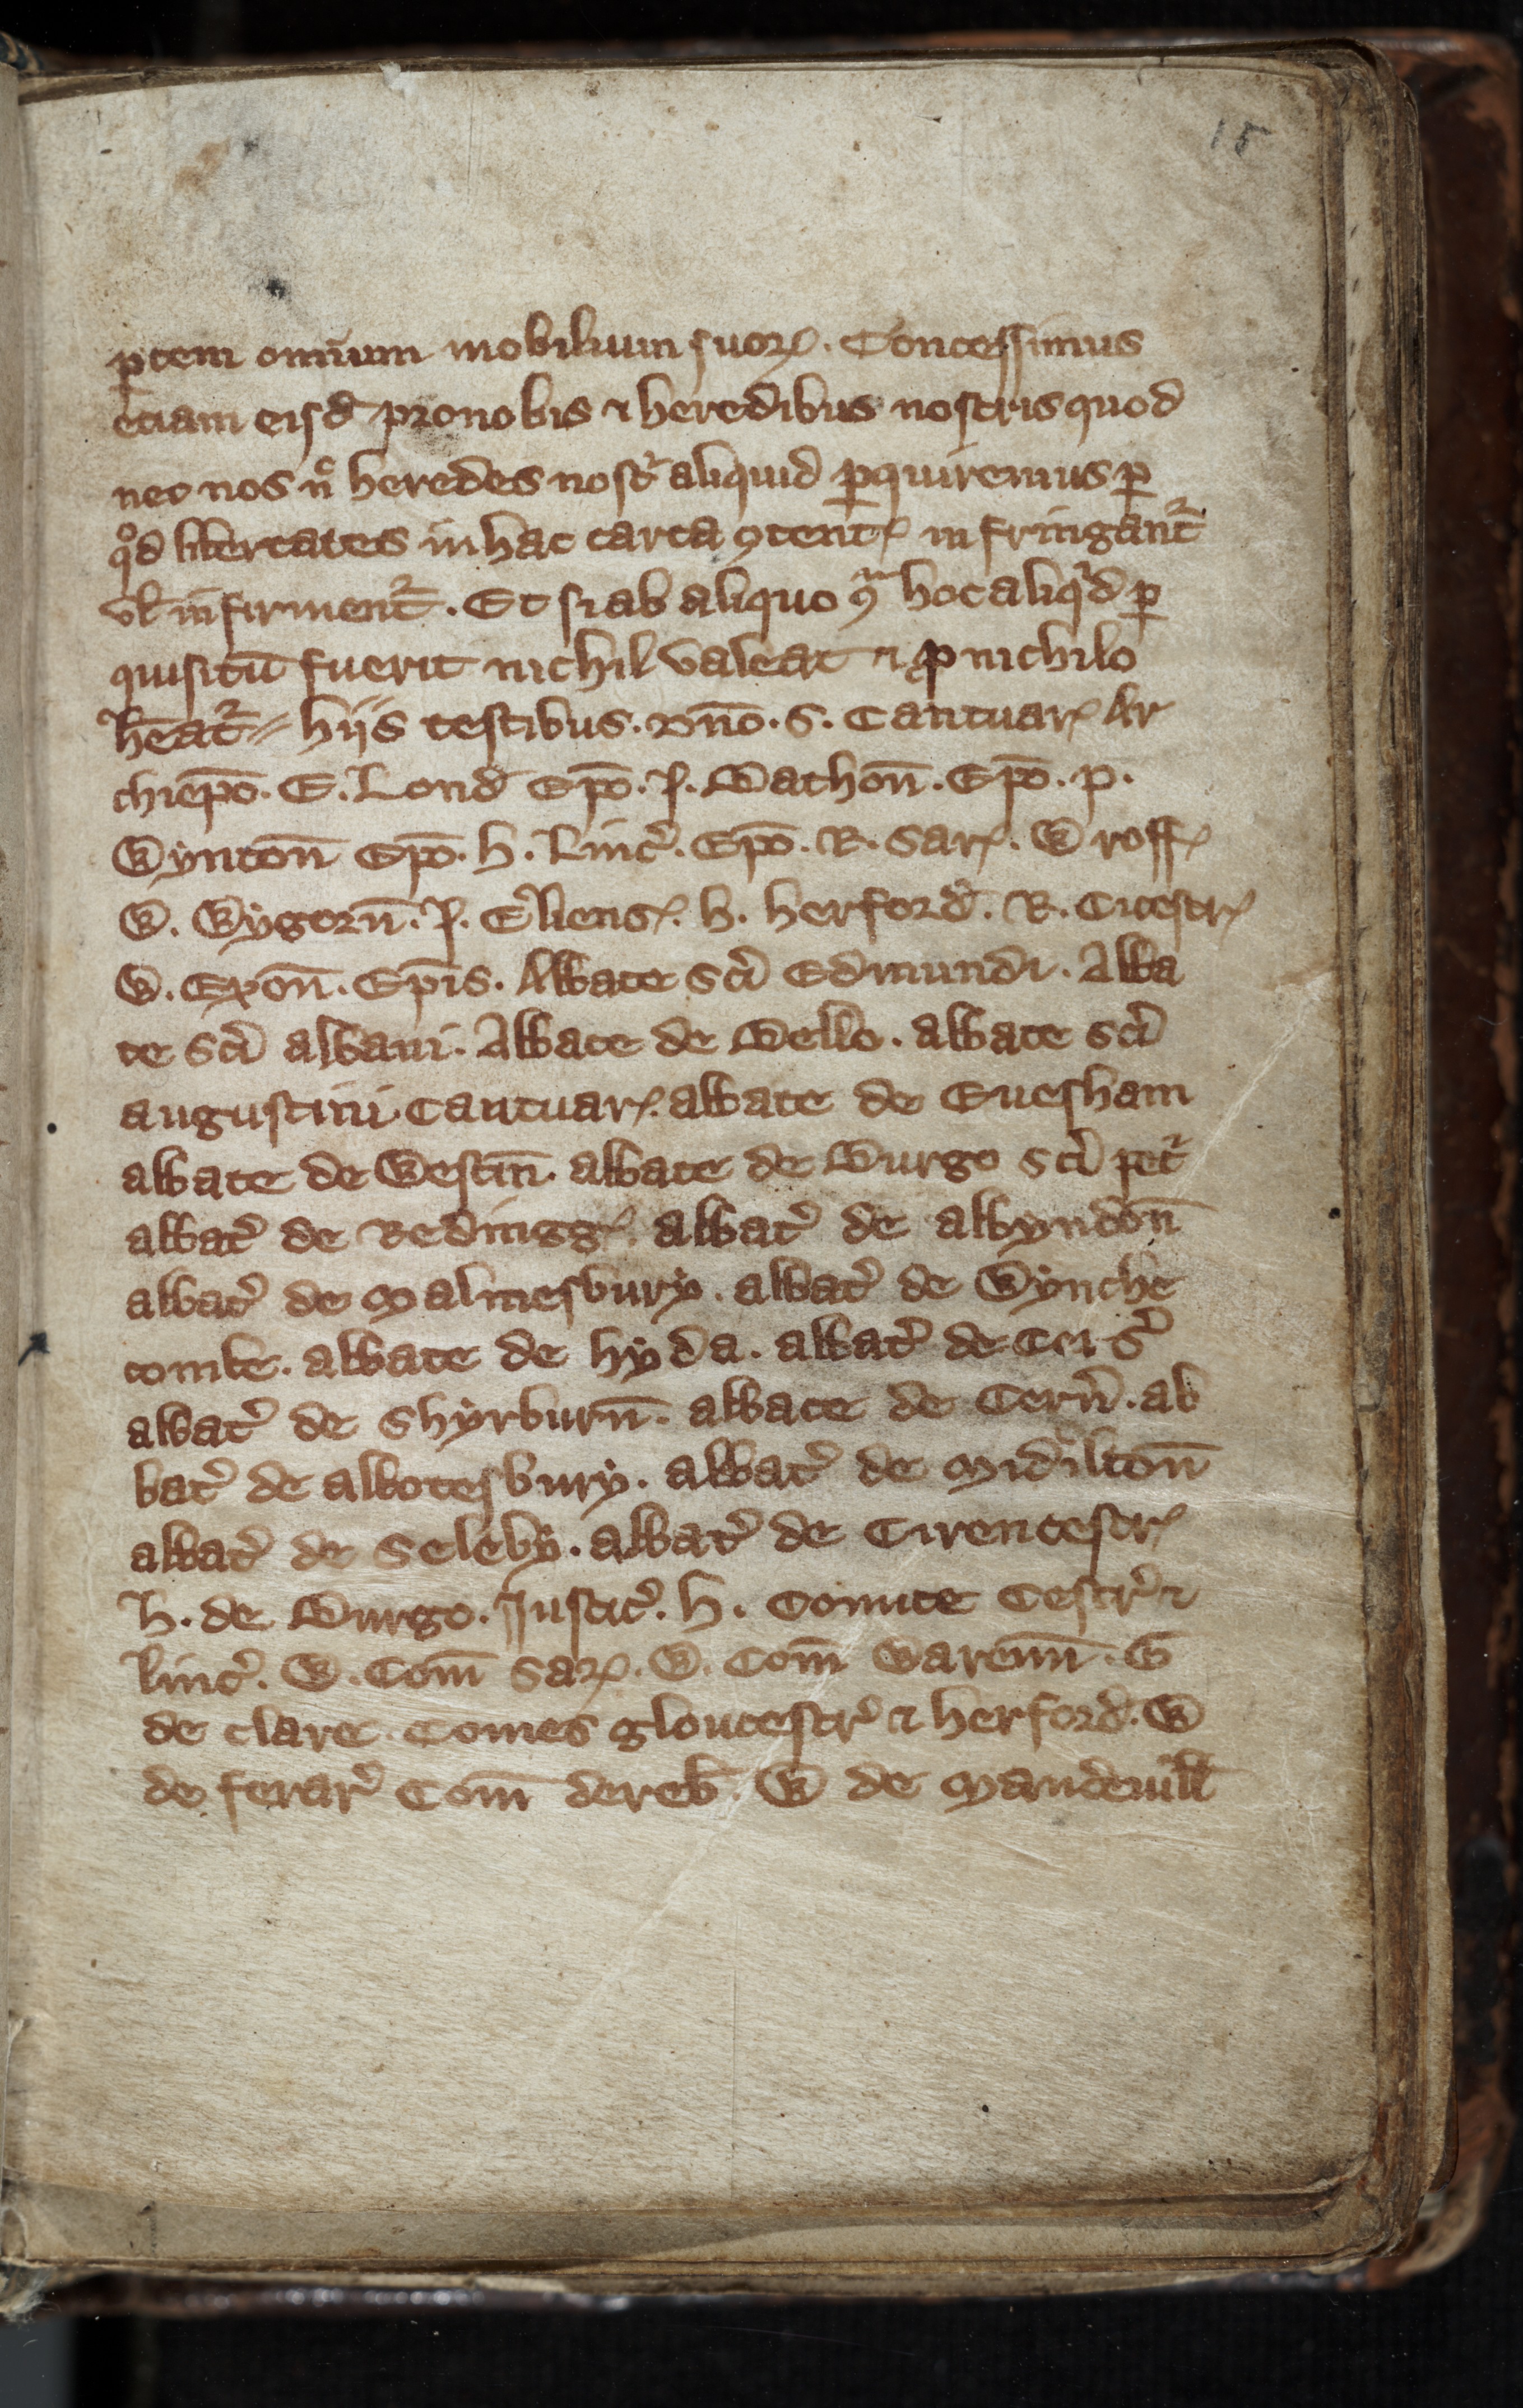 15
ꝑtem omīum mobilium suoꝝ. Concessimus
etiam eisđ pro nobis ⁊ heredibus nostris quod
nec nos n̊ heredes nost͛ aliquid ꝑquiremus ꝑ
qͦd libertates in hac carta ꝯtentꝭ infringant᷑
vł infirment᷑. Et si ab aliquo ꝯͣ hoc aliqͥd ꝑ
quisitū fuerit nichil valeat ⁊ ꝓ nichilo
h̄eat᷑ hiis testibus. Dn̄o. S. Cantuarꝭ Ar
chiep̄o. E. Lonđ Ep̄o. J. Bathon̄. Ep̄o. p.
Wynton̄ Ep̄o. H. Linc͛. Ep̄o. R. Sarꝭ. W roffꝭ
W. Wygorn̄. J. Eliensꝭ. h. herforđ. R. Cicestrꝭ
W. Exon̄. Ep̄is. Abbate sc̄i Edmundi. Abba
te sc̄i albani. Abbate de Bello. abbate sc̄i
augustini Cantuarꝭ. abbate de Euesham
abbate de Westm̄. abbate de Burgo sc̄i pet͛
abbat͛ de Redinggꝭ. abbat͛ de abbyndon̄
abbat͛ de Malmesbury. abbat͛ de Wynche
combe. abbate de hyda. abbat͛ de Certꝭ
abbat͛ de Shyrburn̄. abbate de Cern͛. ab
bat͛ de abbotesbury. abbat͛ de Midilton̄
abbat͛ de Seleby. abbat͛ de Cirencestrꝭ
h. de Burgo. Justic͛. h. Comite Cestr͛ ⁊
linc͛. W. Com̄ Saꝝ. W. Com̄ Warenn̄. G
de clare. Comes gloucestr͛ ⁊ herforđ. W
de ferar͛ Com̄ dereb̄. W de Mandeuiłł